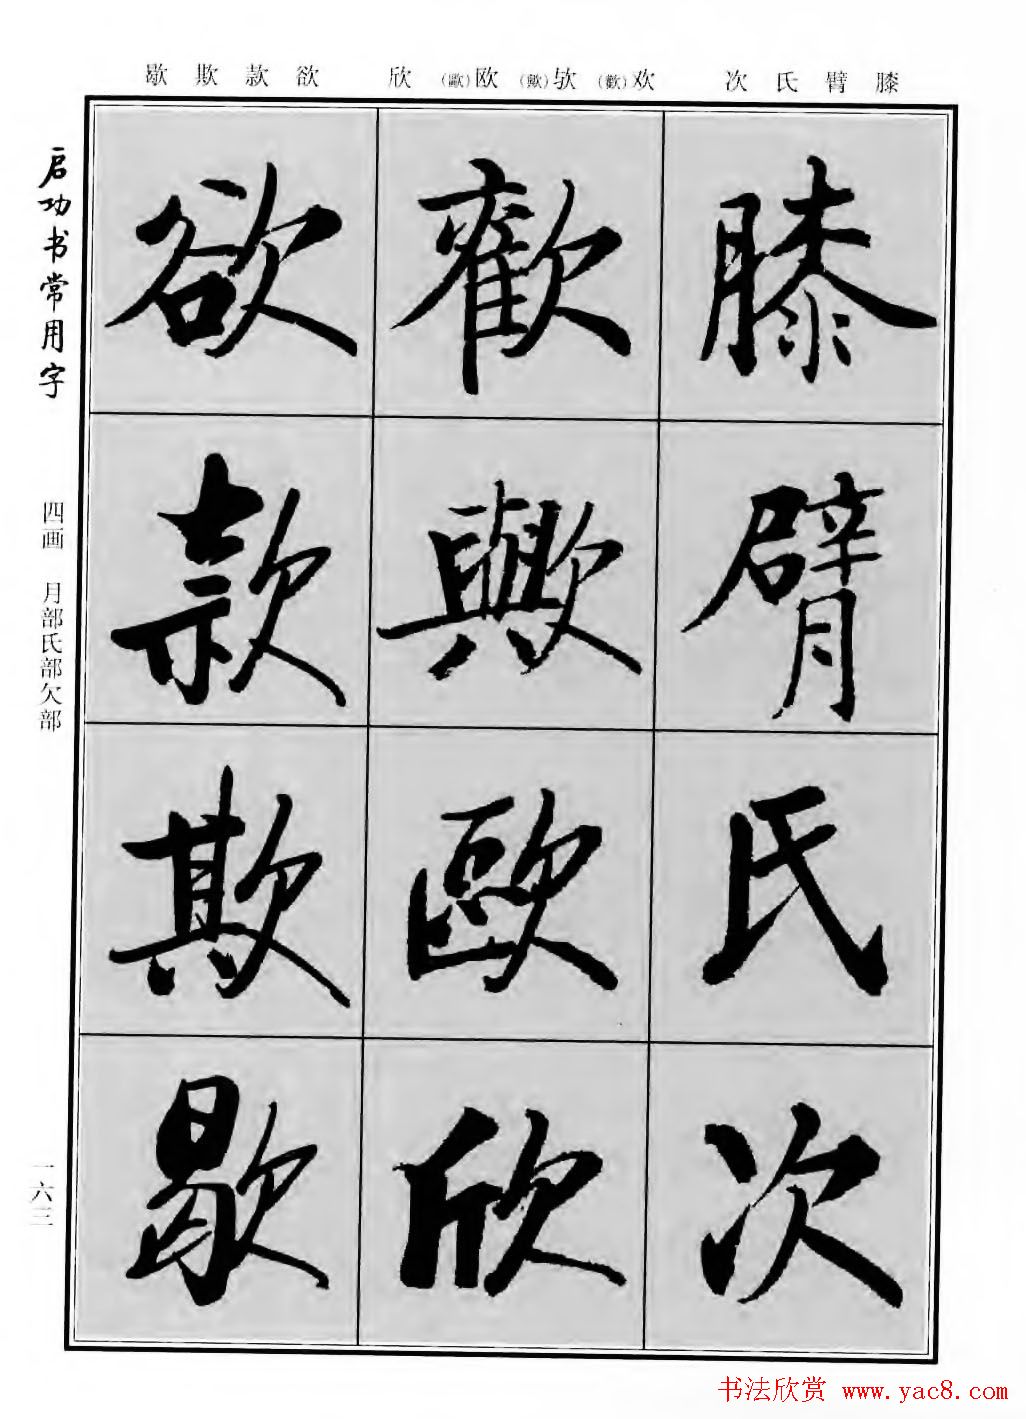 膝臂氏次
欢(歡)欤(歟)欧(歐)欣
欲款欺歇
启功书常用字
四画 月部氏部欠部
一六三
膝
臂
氏
次
歡
歟
歐
欣
欲
款
欺
歇
书法欣赏 www.yac8.com